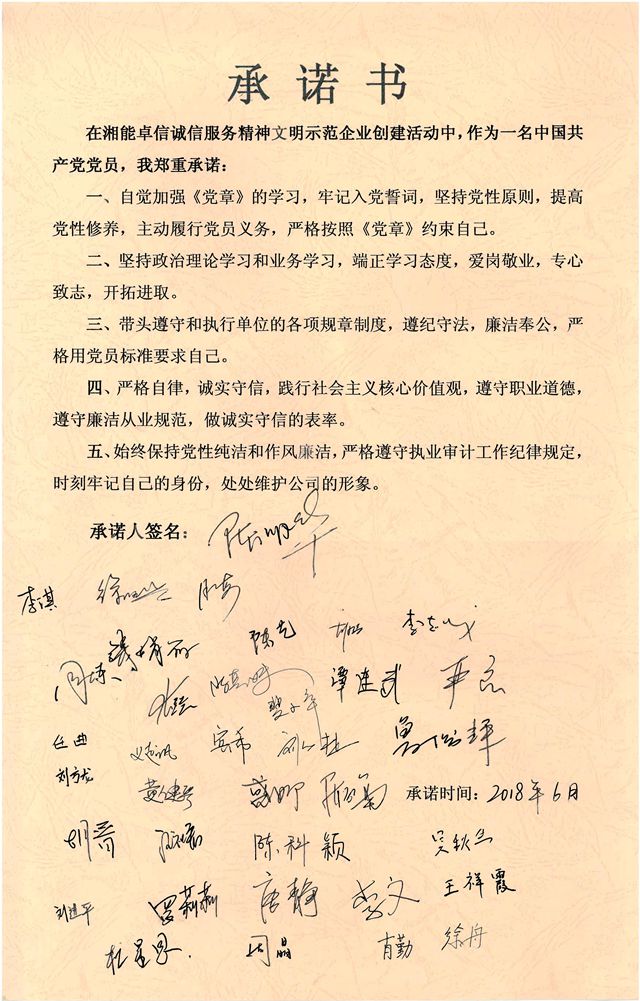 承诺书
在湘能卓信诚信服务精神文明示范企业创建活动中，作为一名中国共
产党党员，我郑重承诺：
一、自觉加强《党章》的学习，牢记入党誓词，坚持党性原则，提高
党性修养，主动履行党员义务，严格按照《党章》约束自己。
二、坚持政治理论学习和业务学习，端正学习态度，爱岗敬业，专心
致志，开拓进取。
三、带头遵守和执行单位的各项规章制度，遵纪守法，廉洁奉公，严
格用党员标准要求自己。
四、严格自律，诚实守信，践行社会主义核心价值观，遵守职业道德，
遵守廉洁从业规范，做诚实守信的表率。
五、始终保持党性纯洁和作风廉洁，严格遵守执业审计工作纪律规定，
时刻牢记自己的身份，处处维护公司的形象。
承诺人签名：
李淇
谭建武
刘方龙
承诺时间：2018年6月
胡晋 陈科颖
刘进平 罗莉莉 唐静 李文 王祥霞
周晶 肖勤 徐舟